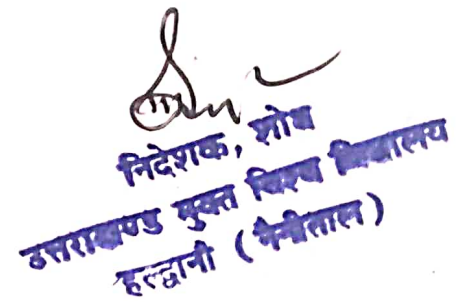 निदेशक, शोध
उत्तराखण्ड मुक्त विश्व विद्यालय
हल्द्वानी (नैनीताल)